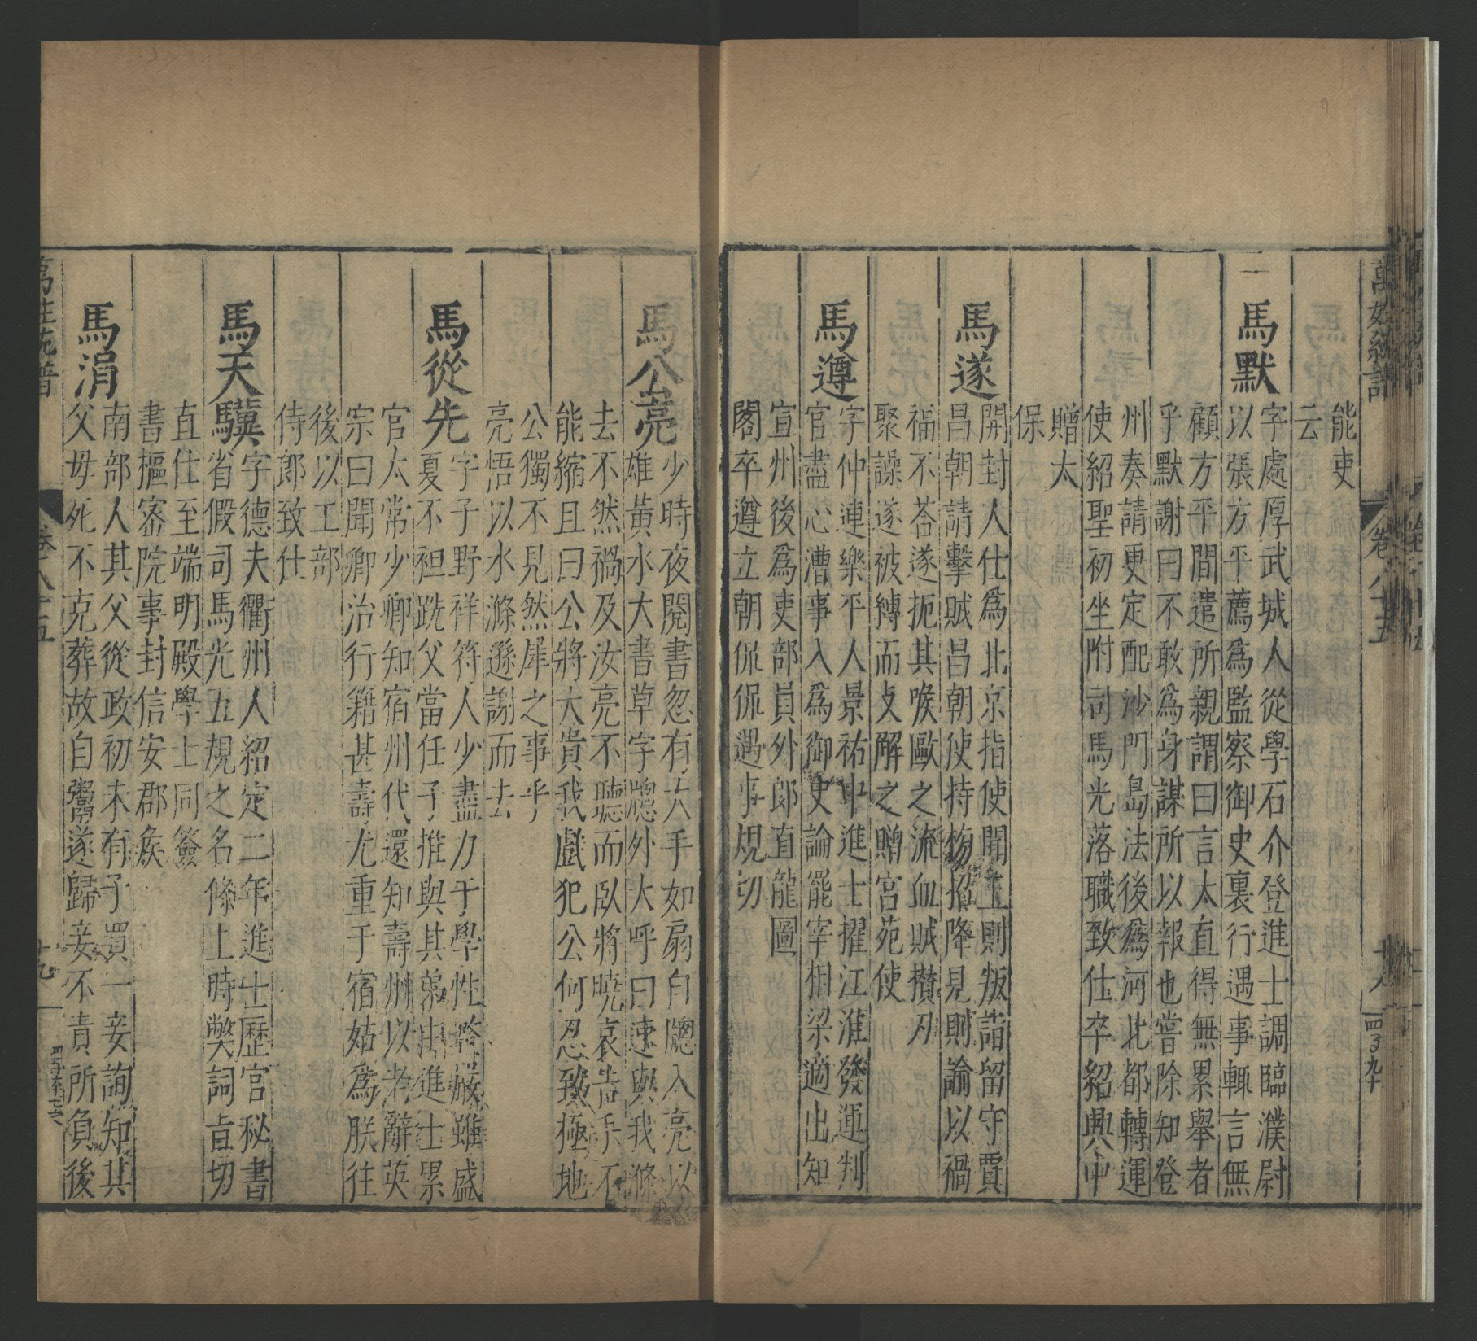 萬姓統譜
卷八十五
十八
能吏
云
馬默
字處厚武城人從學石介登進士調臨濮尉
以張方平薦爲監察御史裏行遇事輒言無
顧方平間遣所親謂曰言太直得無累舉者
乎默謝曰不敢爲身謀所以報也嘗除知登
州奏請更定配沙門島法後爲河北都轉運
使紹聖初坐附司馬光落職致仕卒紹興中
贈太
保
馬遂
開封人仕爲北京指使聞王則叛詣留守賈
昌朝請擊賊昌朝使持榜招降見則諭以禍
福不荅遂扼其喉歐之流血賊攢刃
聚譟遂被縛而支解之贈宮苑使
馬遵
字仲連樂平人景祐中進士擢江淮發運判
官盡心漕事入爲御史論罷宰相梁適出知
宣州後爲吏部員外郎直龍圖
閣卒遵立朝侃侃遇事規切
馬公亮
少時夜閱書忽有大手如扇自牕入亮以
雄黃水大書草字牕外大呼曰速與我滌
去不然禍及汝亮不聽而臥將曉哀告手不
能縮且曰公將大貴我戲犯公何忍致極地
公獨不見然犀之事乎
亮悟以水滌遜謝而去
馬從先
字子野祥符人少盡力于學性嚴雖盛
夏不袒跣父當任子推與其弟出進士累
官太常少卿知宿州代還知壽州以老辭英
宗曰聞卿治行籍甚壽尤重于宿姑爲朕往
後以工部
侍郎致仕
馬天驥
字德夫衢州人紹定二年進士歷官秘書
省假司馬光五規之名條上時獘詞旨切
直仕至端明殿學士同簽
書樞密院事封信安郡侯
馬涓
南部人其父從政初未有子買一妾詢知其
父母死不克葬故自鬻遂歸妾不責所負後
萬姓統譜
卷八十五
十九